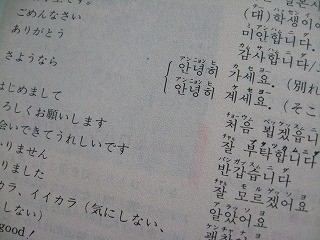 (대)학생이
ごめんなさい 미안합니다.
ありがとう 감사합니다/
さようなら
アンニョン ヒ カ セ ヨ
안녕히 가세요. (別れ
アンニョン ヒ ケ セ ヨ
안녕히 계세요. (そこ
はじめまして 처음 뵙겠습니
ろしくお願いします 잘 부탁합니다
会いできてうれしいです 반갑습니다
りません 잘 모르겠어요
りました 알았어요
カラ、イイカラ（気にしない、
しない）
good！